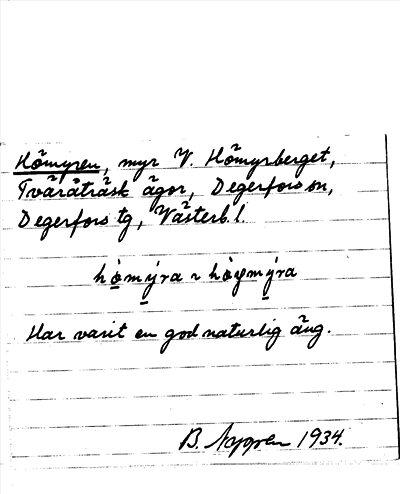 Hömyren, myr V. Hömyrberget,
Tväråträsk ägor, Degerfors sn,
Degerfors tg, Västerb. l.
hö̀mýra ~ hò̤ymýra
Har varit en god naturlig äng.
B. Nygren 1934.